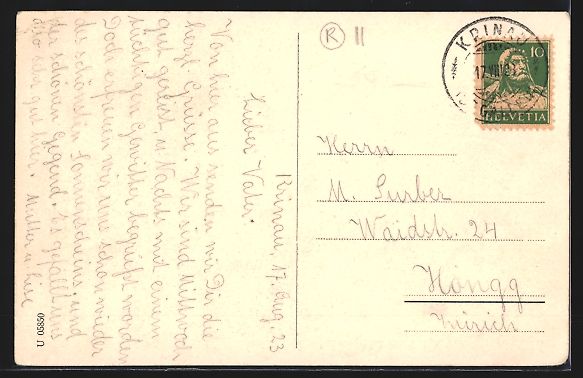 Krinau, 17. Aug. 23
Lieber Vater.
Von hier aus senden wir Dir die
herzl. Grüsse. Wir sind Mittwoch
gut gereist, u. Nachts mit einem
tüchtigen Gewitter begrüsst worden
Doch erfreuen wir uns schon wieder
des schönsten Sonnenscheins, und
der schönen Gegend. Es gefällt uns
also sehr gut hier. Mutter u.
R II
KRINAU
17.VIII.23
10
HELVETIA
Herrn
M. Surber
Waidstr. 24
Höngg
Zürich
U 05850